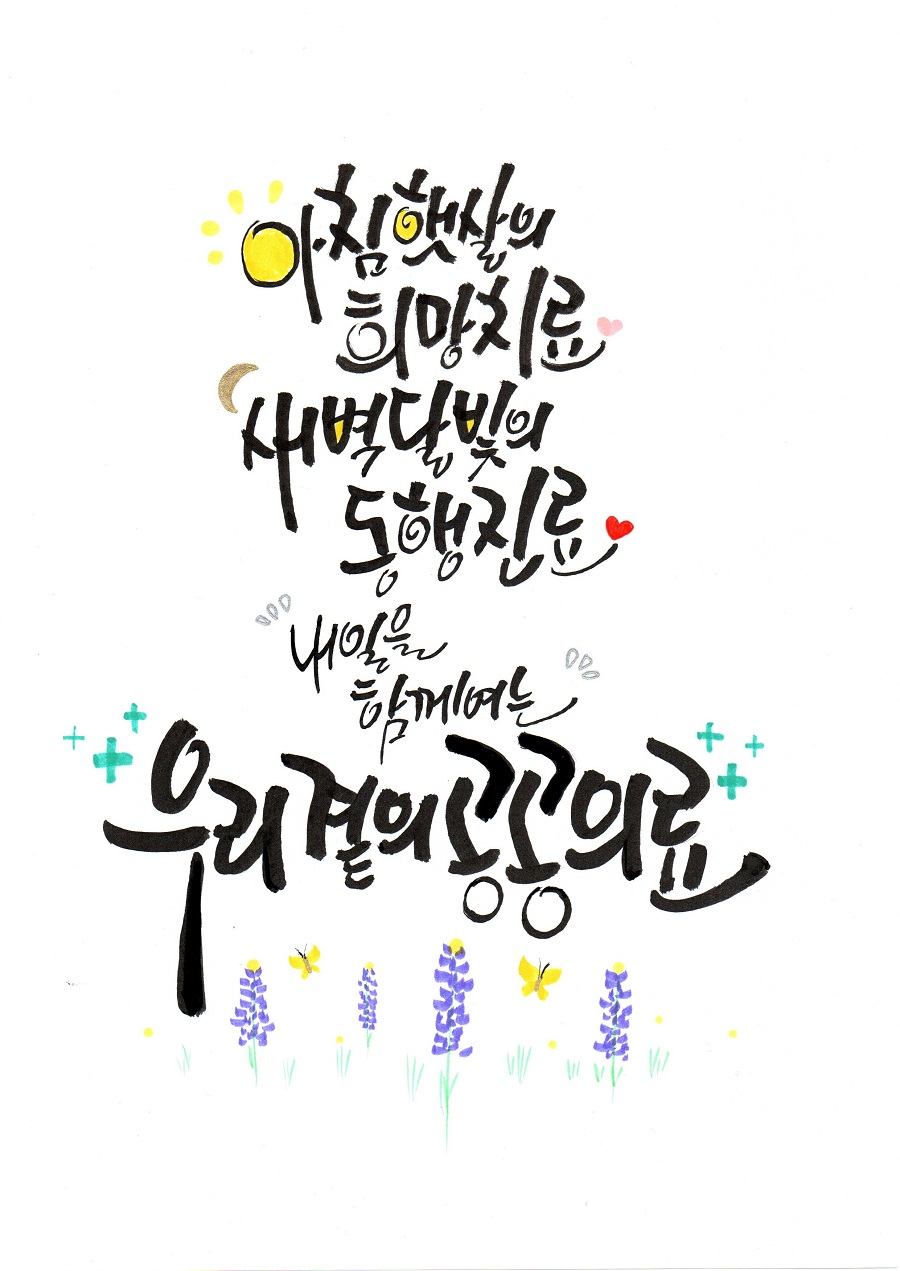 아침햇살의
희망치료
새벽달빛의
동행진료
내일을
함께여는
우리곁의공공의료